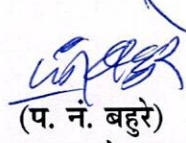 (प. नं. बहुरे)